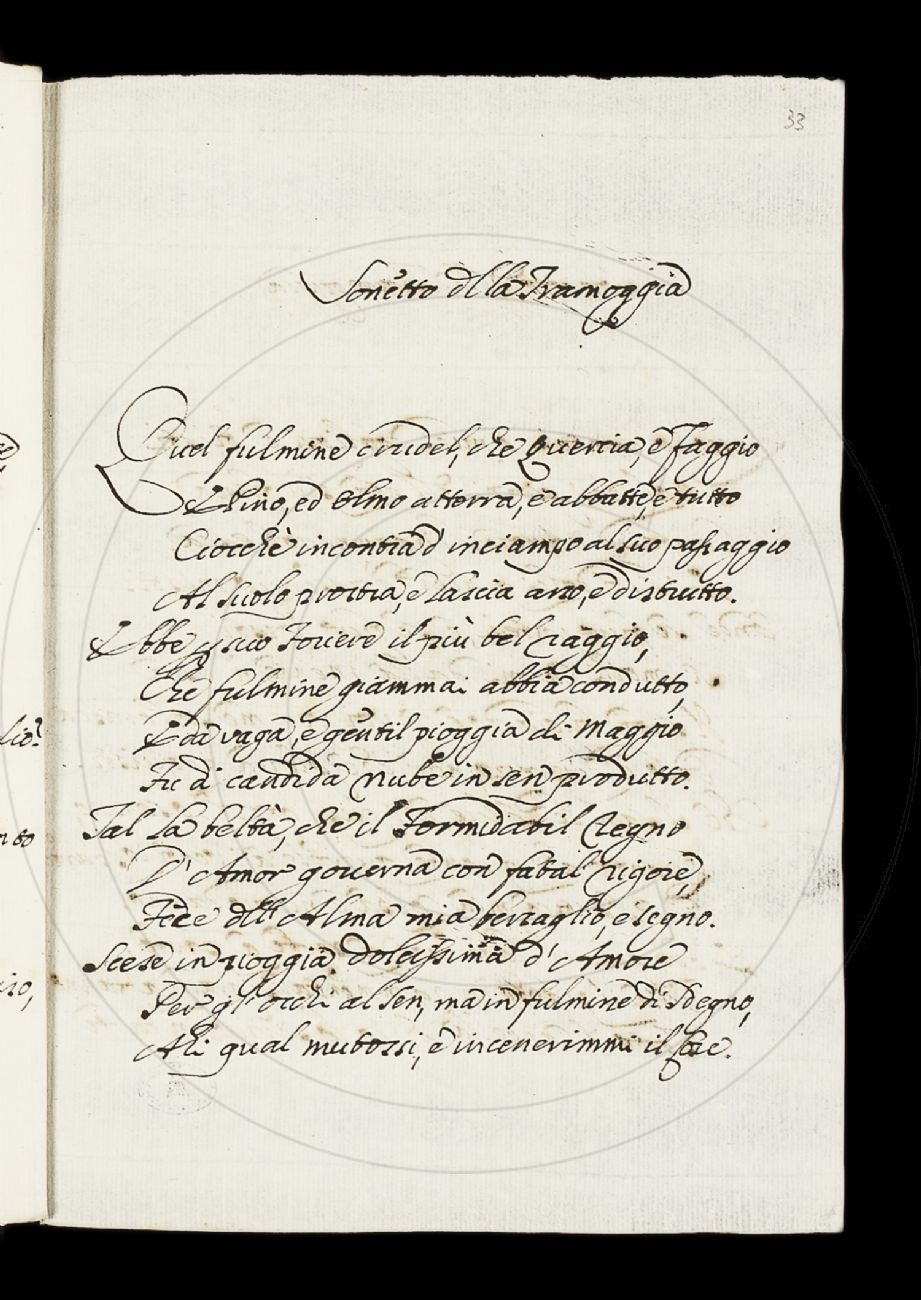 33
Sonetto dlla Tramoggia
Quel fulmine crudel, che Quercia, e Faggio
E Pino, ed Olmo atterra, e abbatte, e tutto
Ciocchè incontra d'inciampo al suo passaggio
Al suolo prostra, e lascia arso, e distrutto.
Ebbe suo Foriere il più bel raggio,
Che fulmine giammai abbia condutto,
E da vaga, e gentil pioggia di Maggio
Fu di candida Nube in sen produtto.
Tal La beltà, che il Formidabil Regno
D'Amor governa con fatal rigore,
Fece dll' Alma mia berzaglio, e segno.
Scese in pioggia dolcissima d'Amore
Per gl'occhi al sen, ma in fulmine di Sdegno,
Ahi qual mutossi, e incenerimmi il Core.